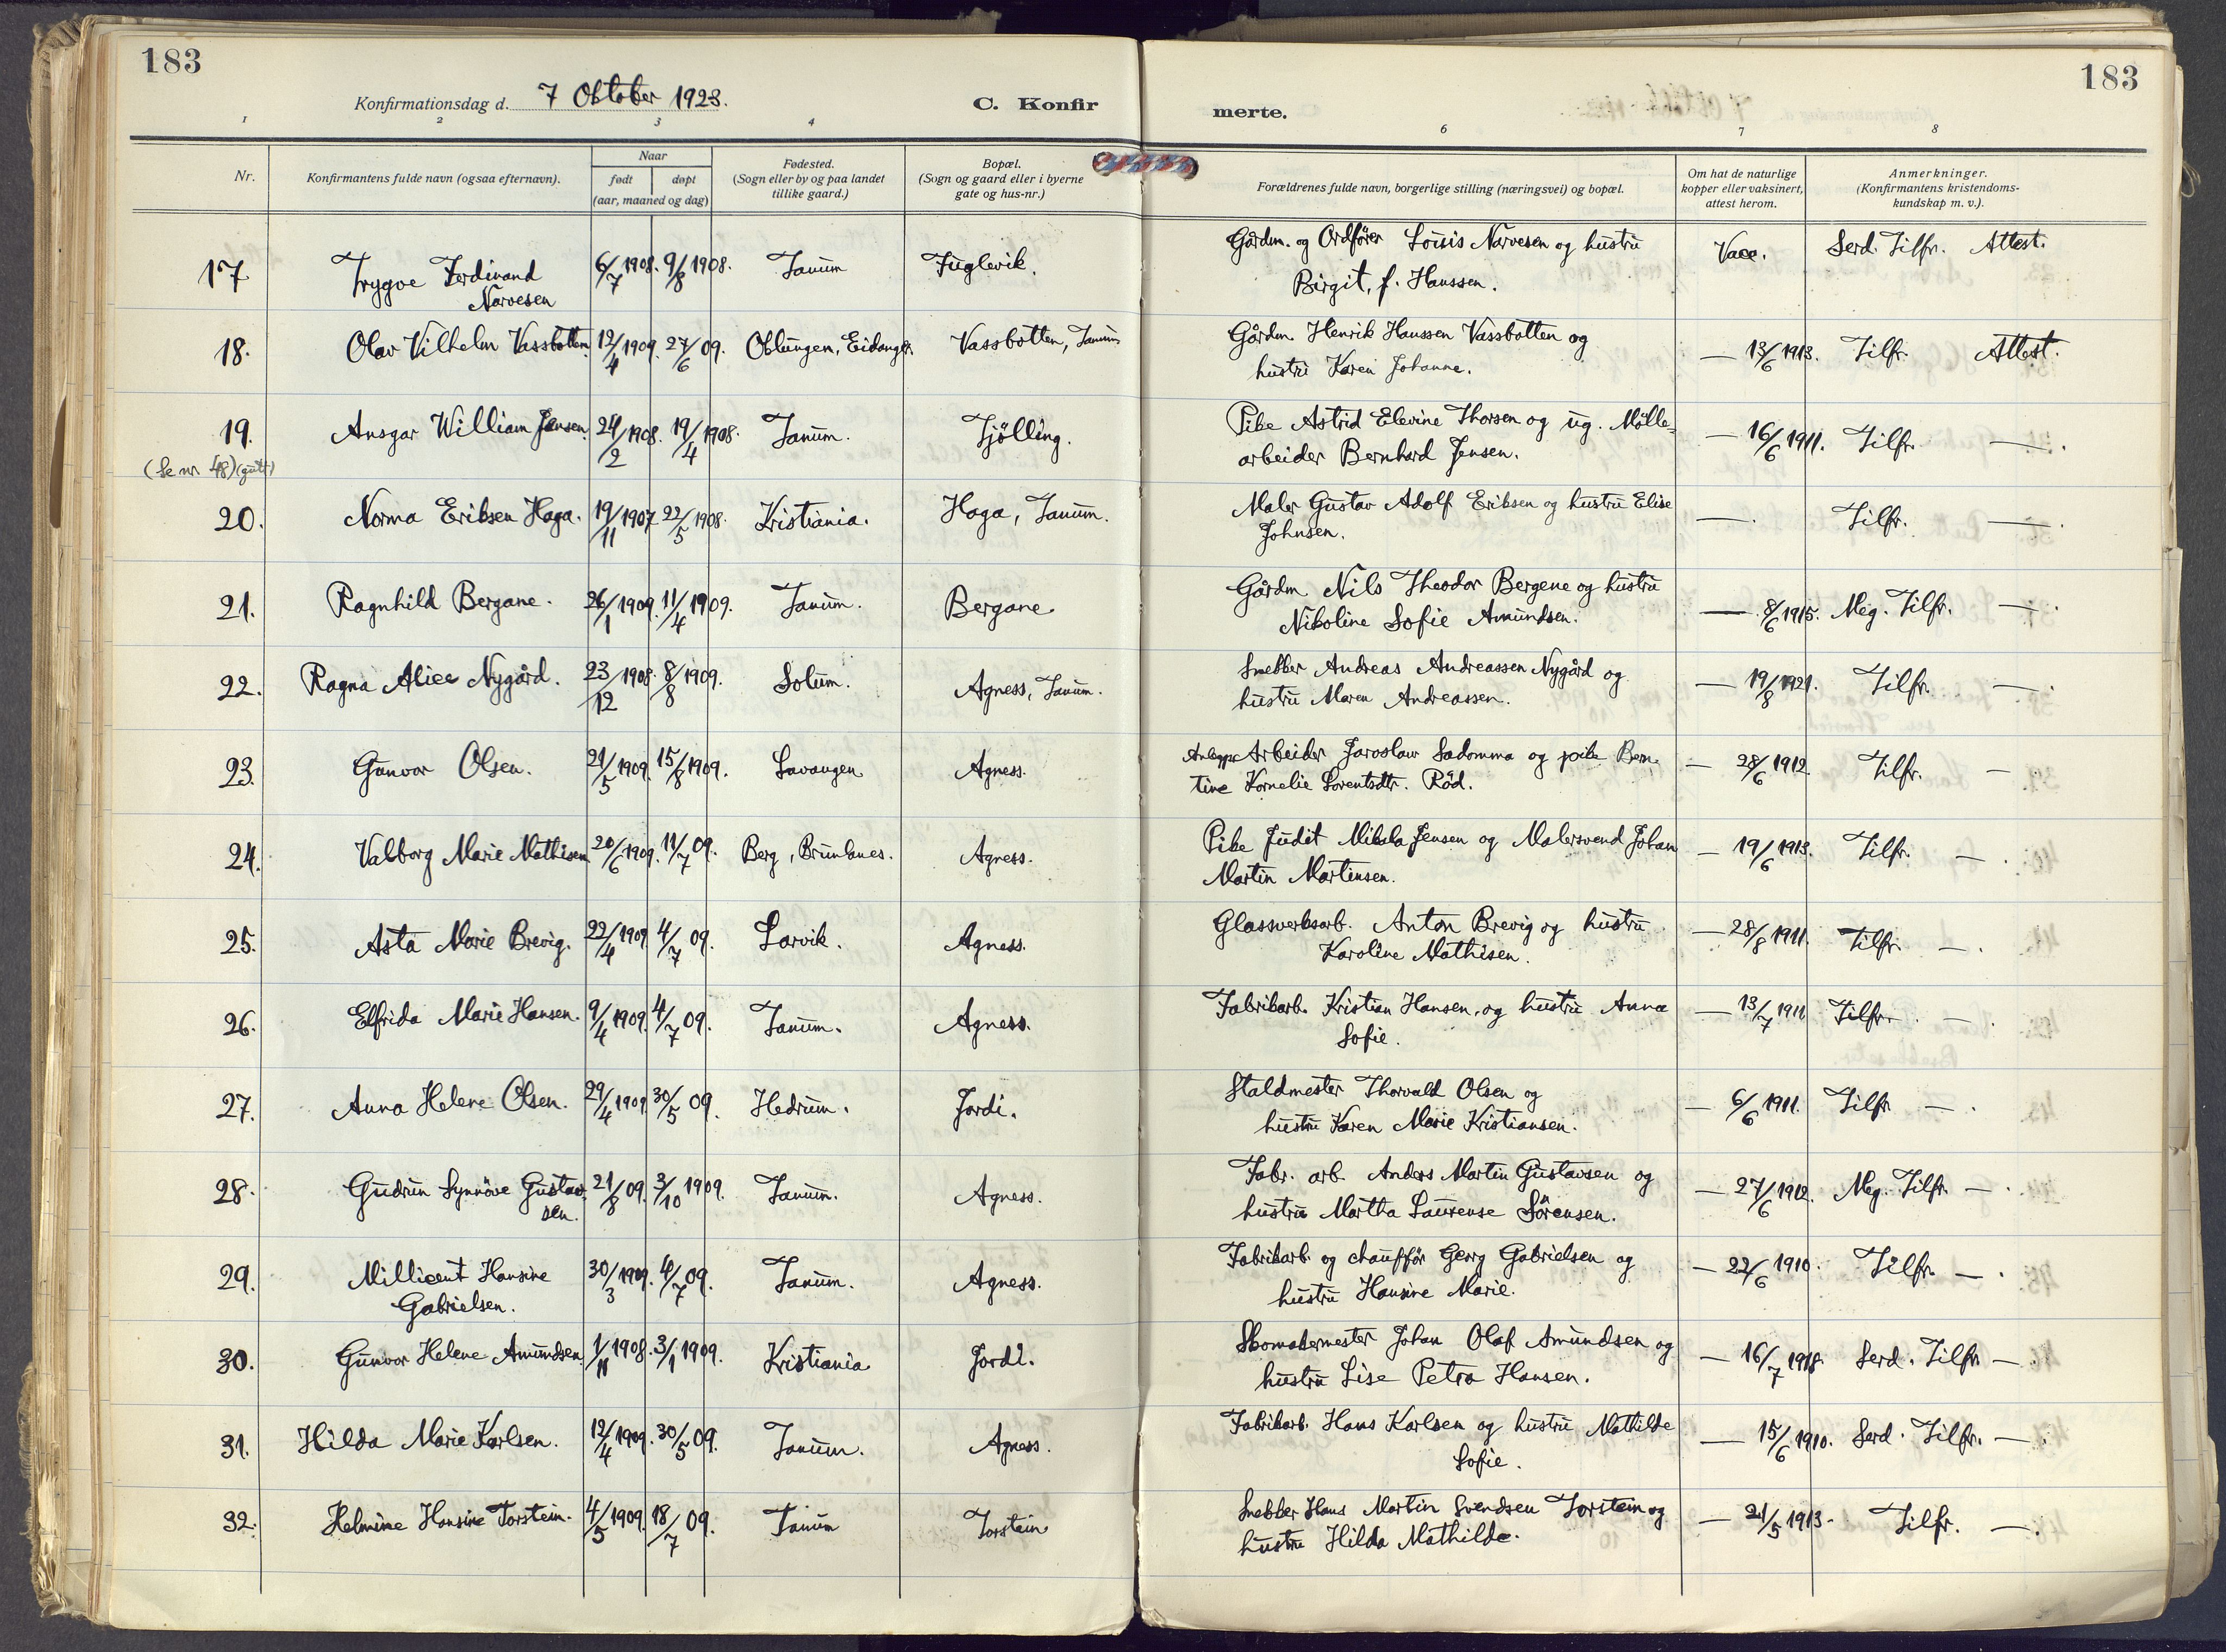 183
Konfirmationsdag d. 7 Oktober 1923.
C. Konfir
merte.
183
1 2 3 4 6 7 8
Nr.
Konfirmantens fulde navn (ogsaa efternavn).
Naar
født døpt
(aar, maaned og dag)
Fødested.
(Sogn eller by og paa landet
tillike gaard.)
Bopæl.
(Sogn og gaard eller i byerne
gate og hus-nr.)
Forældrenes fulde navn, borgerlige stilling (næringsvei) og bopæl.
Om hat de naturlige
kopper eller vaksinert,
attest herom.
Anmerkninger.
(Konfirmantens kristendoms-
kundskap m. v.).
17 Trygve Ferdinand 6/7 1908. 9/8 1908. Tanum Fuglevik.
Narvesen
Gårdm. og Ordfører Louis Narvesen og hustru Vacc. Serd. Tilfr. Attest.
Birgit, f. Hanssen.
18. Olav Vilhelm Vassbotten 12/4 1909. 27/6 09. Oklungen, Eidanger. Vassbotten, Tanum
Gårdm. Henrik Hanssen Vassbotten og — 13/6 1913. Tilfr. Attest.
hustru Karen Johanne.
19. Ansgar William Jensen. 24/2 1908. 19/4 1908. Tanum. Tjölling.
(Se nr. 48) (gutt)
Pike Astrid Elevine Thorsen og ug. Mölle= — 16/6 1911. Tilfr. — .
arbeider Bernhard Jensen.
20. Norma Eriksen Haga. 19/11 1907 22/5 1908. Kristiania. Haga, Tanum.
Maler Gustav Adolf Eriksen og hustru Elise — . Tilfr. — .
Johnsen.
21. Ragnhild Bergane. 26/1 1909. 11/4 1909. Tanum. Bergane.
Gårdm Nils Theodor Bergene og hustru — 8/6 1915. Meg. Tilfr. — .
Nikoline Sofie Amundsen.
22. Ragna Alice Nygård. 23/12 1908. 8/8 1909. Solum. Agness, Tanum.
Snekker Andreas Andreassen Nygård og — 19/8 1921. Tilfr. — .
hustru Maren Andreassen.
23. Gunvor Olsen. 21/5 1909. 15/8 1909. Lavangen Agness.
Anleggs Arbeider Jaroslaw Sadomma og pike Bern= — 28/6 1912. Tilfr. —
tine Kornelie Lorentsdtr. Röd.
24. Valborg Marie Mathisen 20/6 1909. 11/7 09. Berg, Brunlanes. Agness.
Pike Judit Mikala Jensen og Malersvend Johan — 19/6 1913. Tilfr. — .
Martin Martinsen.
25. Asta Marie Brevig. 22/4 1909. 4/7 09. Larvik. Agness.
Glassverksarb. Anton Brevig og hustru — 28/8 1911. Tilfr. — .
Karoline Mathisen.
26. Elfrida Marie Hansen. 9/4 1909. 4/7 09. Tanum. Agness.
Fabrikarb. Kristian Hansen, og hustru Anna — 13/7 1911 Tilfr. — .
Sofie.
27. Anna Helene Olsen. 29/4 1909. 30/5 09. Hedrum. Jordi.
Staldmester Thorvald Olsen og — 6/6 1911. Tilfr — .
hustru Karen Marie Kristiansen.
28. Gudrun Synnöve Gustav 21/8 09. 3/10 1909. Tanum. Agness.
sen.
Fabr. arb. Anders Martin Gustavsen og — 27/6 1912. Meg. Tilfr. — .
hustru Martha Laurense Sörensen.
29. Millicent Hansine 30/3 1909. 4/7 09. Tanum. Agness.
Gabrielsen.
Fabrikarb. og chauffør Georg Gabrielsen og — 22/6 1910. Tilfr. — .
hustru Hansine Marie.
30. Gunvor Helene Amundsen 1/11 1908. 3/1 1909. Kristiania Jordi.
Skomakermester Johan Olaf Amundsen og — 16/7 1918. Serd. Tilfr — .
hustru Lise Petra Hansen.
31. Hilda Marie Karlsen. 12/4 1909. 30/5 09. Tanum. Agness.
Fabrikarb. Hans Karlsen og hustru Mathilde — 15/6 1910. Serd. Tilfr. — .
Sofie.
32. Helmine Hansine Torstein. 4/5 1909. 18/7 09. Tanum Torstein
Snekker Hans Martin Svendsen Torstein og — 21/5 1913. Tilfr. — .
hustru Hilda Mathilde.